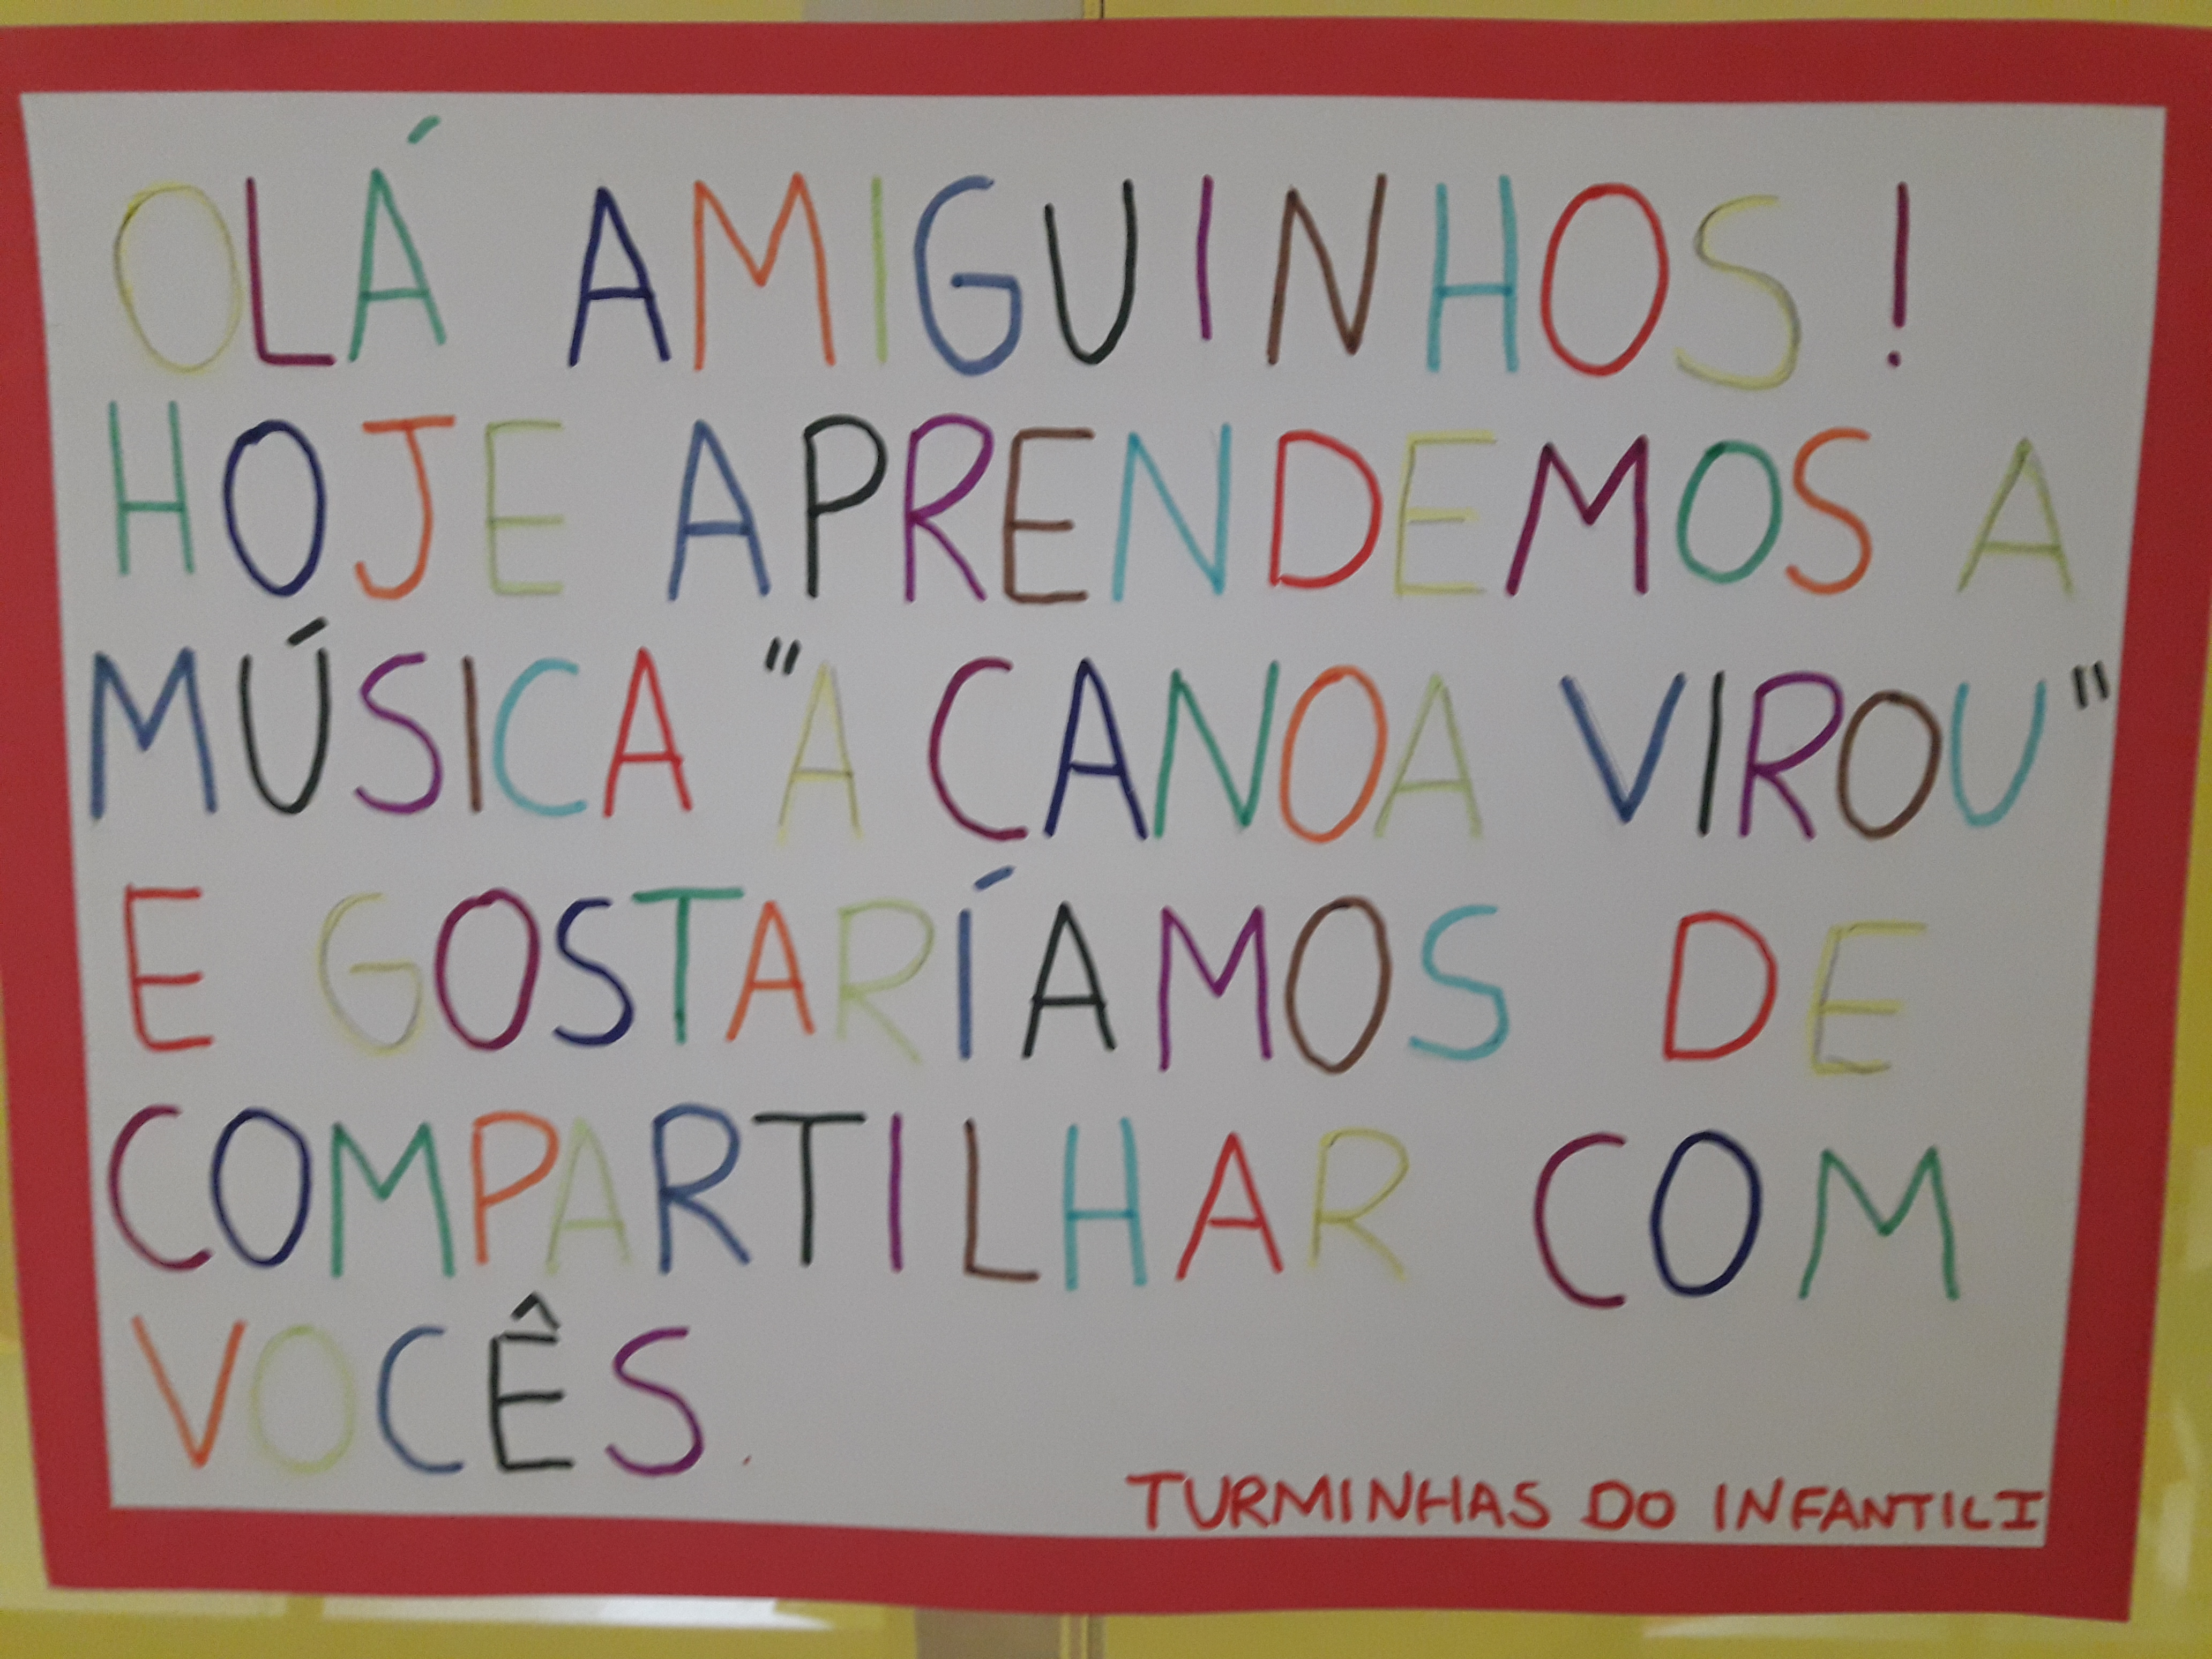 OLÁ AMIGUINHOS!
HOJE APRENDEMOS A
MÚSICA "A CANOA VIROU"
E GOSTARÍAMOS DE
COMPARTILHAR COM
VOCÊS.
TURMINHAS DO INFANTIL I